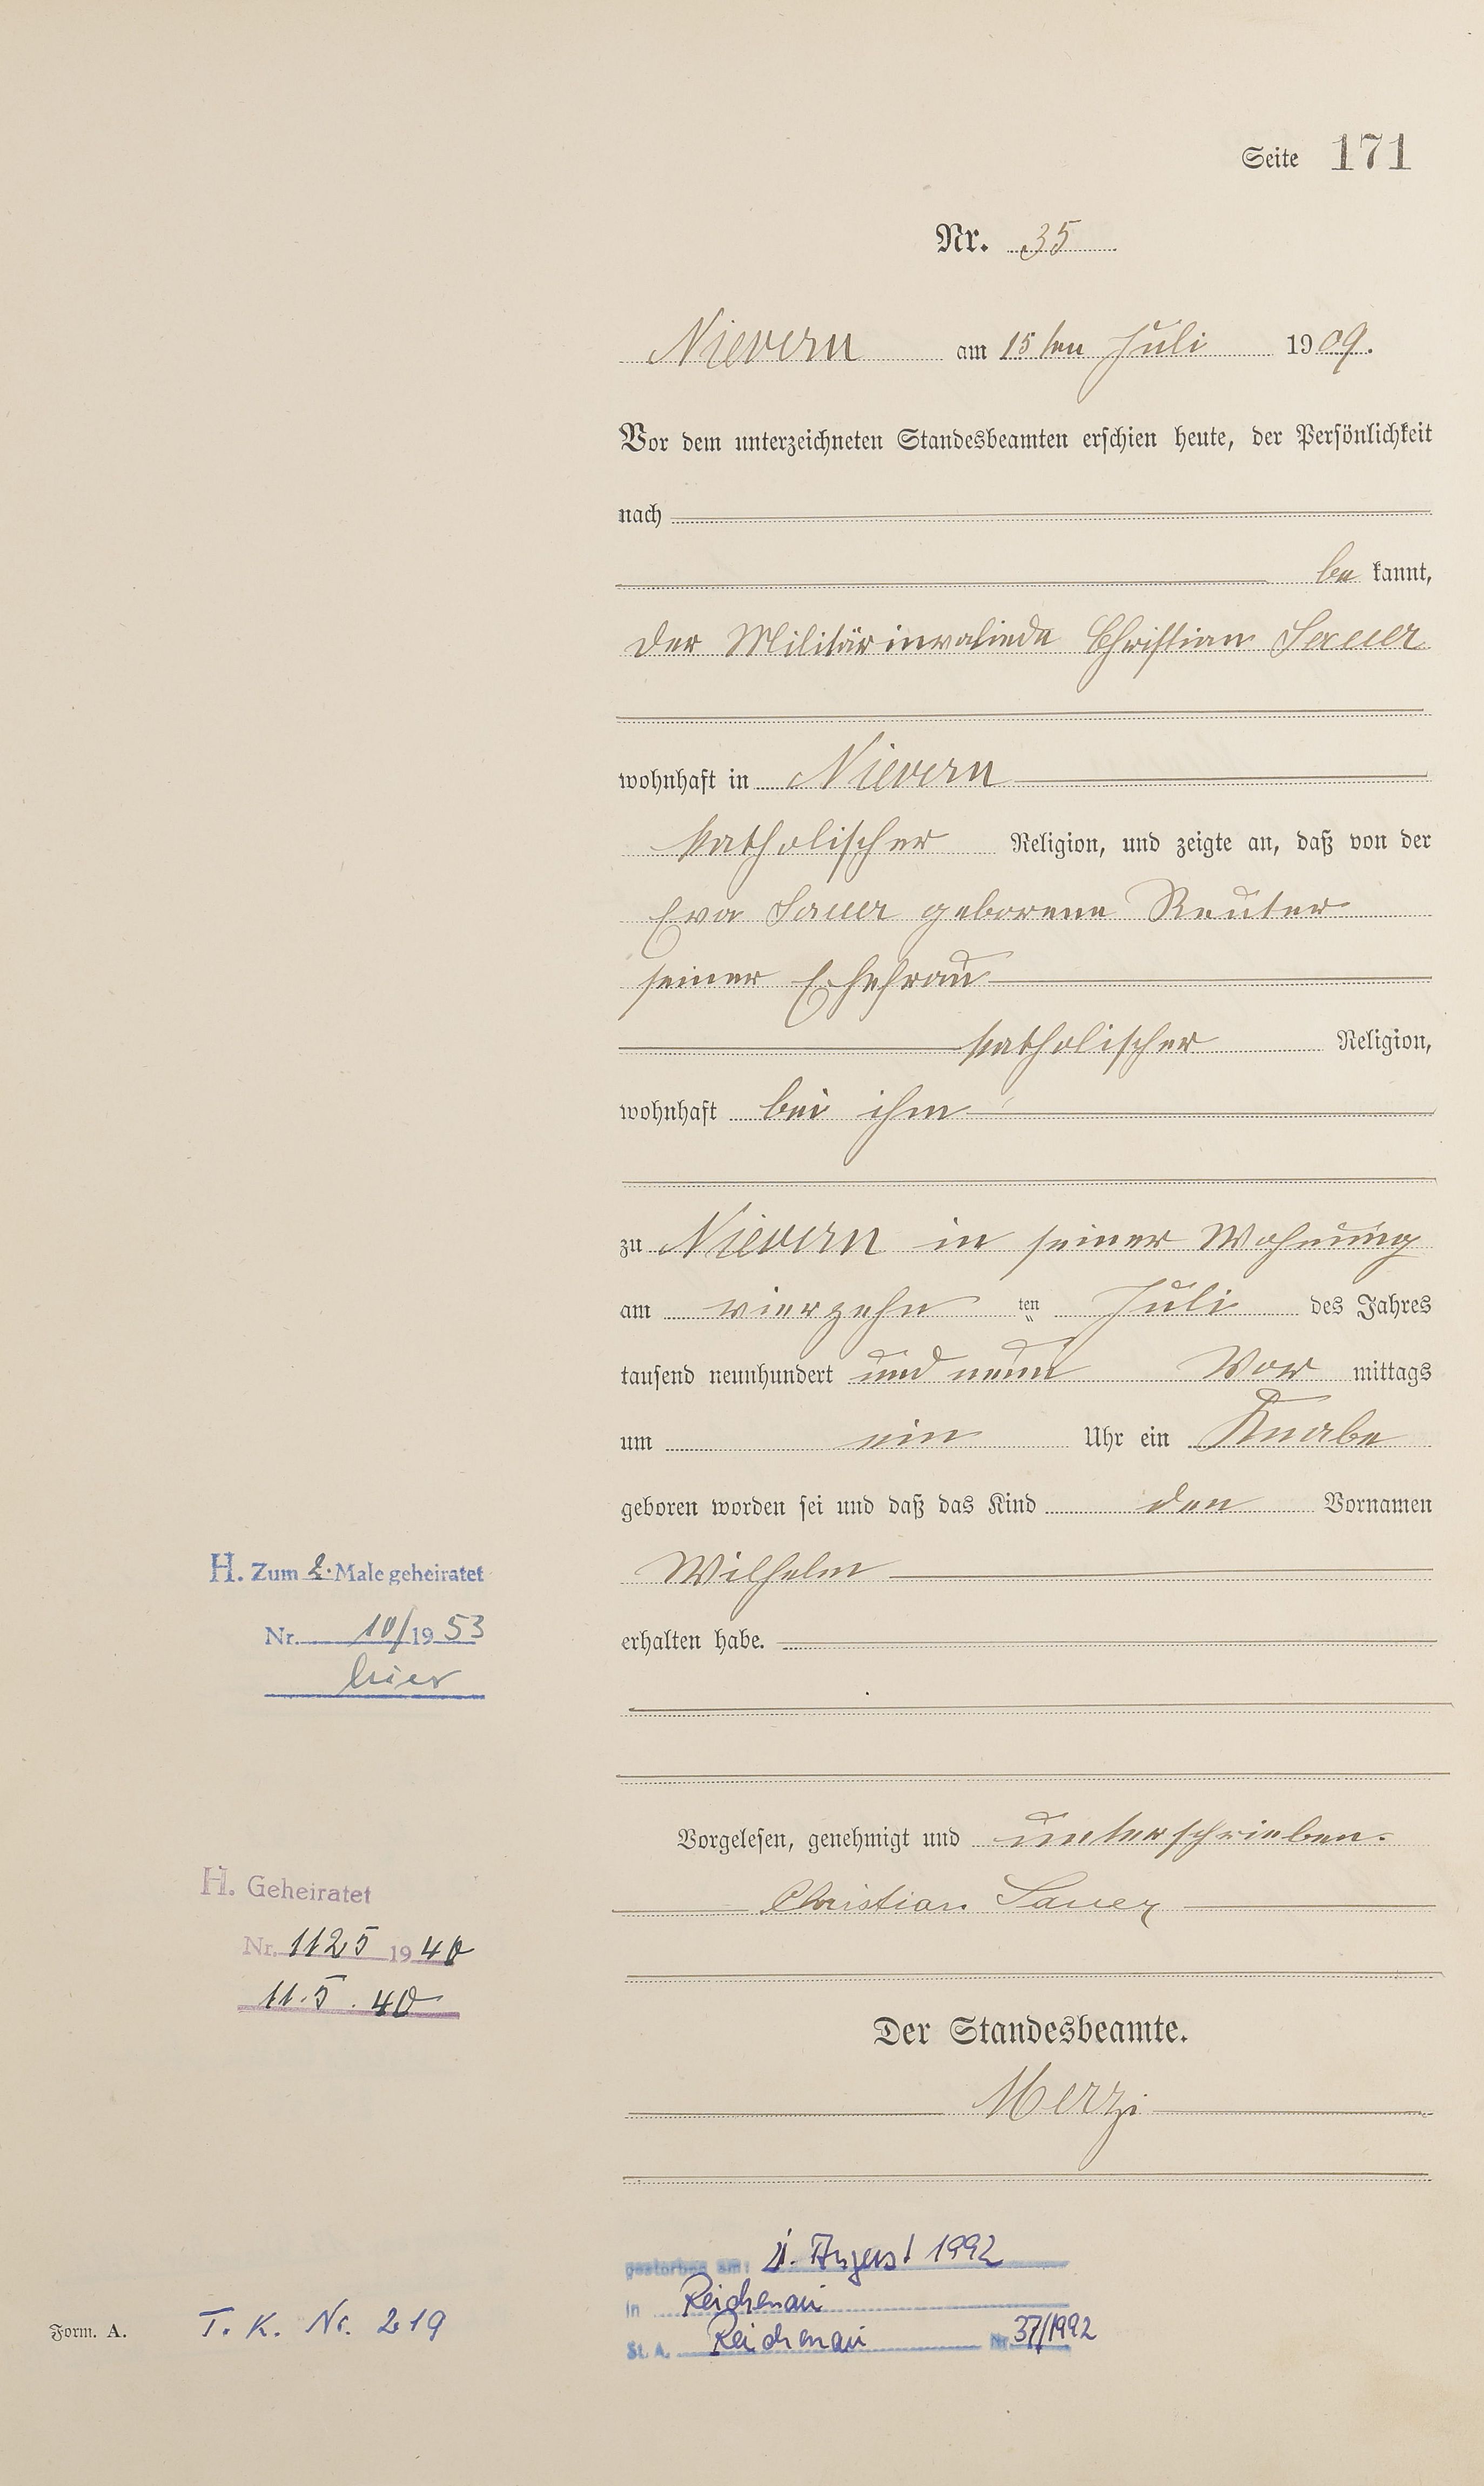 Seite 171
Nr. 35
Nievern am 15ten Juli 1909.
Vor dem unterzeichneten Standesbeamten erschien heute, der Persönlichkeit
nach
be kannt,
der Militärinvaliede Christian Sauer
wohnhaft in Nievern
katholischer Religion, und zeigte an, daß von der
Eva Sauer geborene Reuter
seiner Ehefrau
katholischer Religion,
wohnhaft bei ihm
zu Nievern in seiner Wohnung
am vierzehn ten Juli des Jahres
tausend neunhundert und neun Vor mittags
um ein Uhr ein Knabe
geboren worden sei und daß das Kind den Vornamen
Wilhelm
erhalten habe.
H. Zum 2. Male geheiratet
Nr. 10/1953
hier
Vorgelesen, genehmigt und unterschrieben.
Christian Sauer
H. Geheiratet
Nr. 1125 1940
11.5.40
Der Standesbeamte.
Merzi
gestorben am: August 1992
in Reichenau
St. A. Reichenau Nr 37/1992
Form. A. T. K. Nr. 219